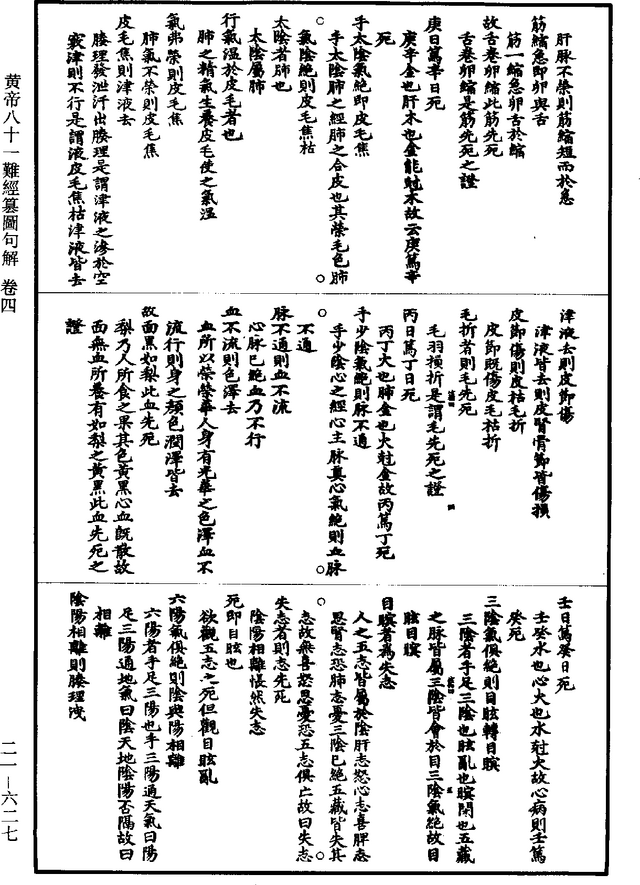 黄帝八十一難經纂圖句解 卷四
二一—六二七
肝脉不榮則筋縮短而於急
筋縮急即卵與舌
筋一縮急卵舌於縮
故舌卷卵縮此筋先死
舌卷卵縮是筋先死之證
庚日篤辛日死
庚辛金也肝木也金能尅木故云庚篤辛
死
手太陰氣絶即皮毛焦
手太陰肺之經肺之合皮也其榮毛色肺
氣陰絶則皮毛焦枯
太陰者肺也
太陰屬肺
行氣溫於皮毛者也
肺之精氣生養皮毛使之氣溫
氣弗榮則皮毛焦
肺氣不榮則皮毛焦
皮毛焦則津液去
腠理發泄汗出腠理是謂津液之滲於空
竅津則不行是謂液皮毛焦枯津液皆去
津液去則皮節傷
津液皆去則皮腎骨節皆傷損
皮節傷則皮枯毛折
皮節既傷皮毛枯折
毛折者則毛先死
毛羽損折是謂毛先死之證
丙日篤丁日死
丙丁火也肺金也火尅金故丙篤丁死
手少陰氣絶則脉不通
手少陰心之經心主脉真心氣絶則血脉
不通
脉不通則血不流
心脉已絶血乃不行
血不流則色澤去
血所以榮榮華人身有光華之色澤血不
流行則身之顏色潤澤皆去
故面黑如梨此血先死
梨乃人所食之果其色黄黑心血既散故
面無血所養有如梨之黄黑此血先死之
證
壬日篤癸日死
壬癸水也心火也水尅火故心病則壬篤
癸死
三陰氣俱絶則目眩轉目瞑
三陰者手足三陰也眩亂也瞑閉也五藏
之脉皆屬三陰皆會於目三陰氣絶故目
眩目瞑
目瞑者為失志
人之五志皆屬於陰肝志怒心志喜脾志
思腎志恐肺志憂三陰已絶五藏皆失其
志故無喜怒思憂恐五志俱亡故曰失志
失志者則志先死
陰陽相離悵然失志
死即目眩也
欲觀五志之死但觀目眩亂
六陽氣俱絶則陰與陽相離
六陽者手足三陽也手三陽通天氣曰陽
足三陽通地氣曰陰天地陰陽否隔故曰
相離
陰陽相離則腠理洩